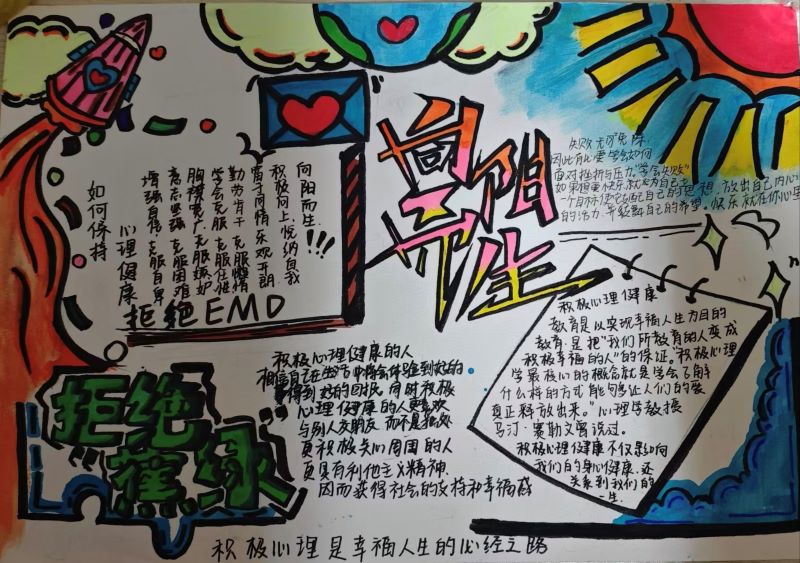 如何保持
心理健康
向阳而生!!!
积极向上 悦纳自我
富于同情 乐观开朗
勤劳肯干 克服懒惰
学会克服 克服任性
胸襟宽广 克服嫉妒
意志坚强 克服困难
增强自信 克服自卑
拒绝EMO
向阳而生
失败无可免除
因此有必要学会如何
面对挫折与压力"学会失败"
的活力,并鼓舞自己的希望。快乐就在你心里
积极心理健康
教育是以实现幸福人生为目的
教育.是把"我们所教育的人变成
积极幸福的人"的保证。"积极心理
学最核心的概念就是学会了解
什么样的方式能够让人们的
真正释放出来。"心理学教授
马汀·赛勒文曾说过。
积极心理健康不仅是如何
我们的身心健康.还
关系到我们的
一生.
拒绝
蕉绿
积极心理健康的人
相信自己在生活中将会体验到好的
得到好的回报.同时积极
心理健康的人更喜欢
与别人交朋友 而不是独处
更积极关心周围的人
更具有利他主义精神.
因而获得社会的支持和幸福感
积极心理是幸福人生的必经之路